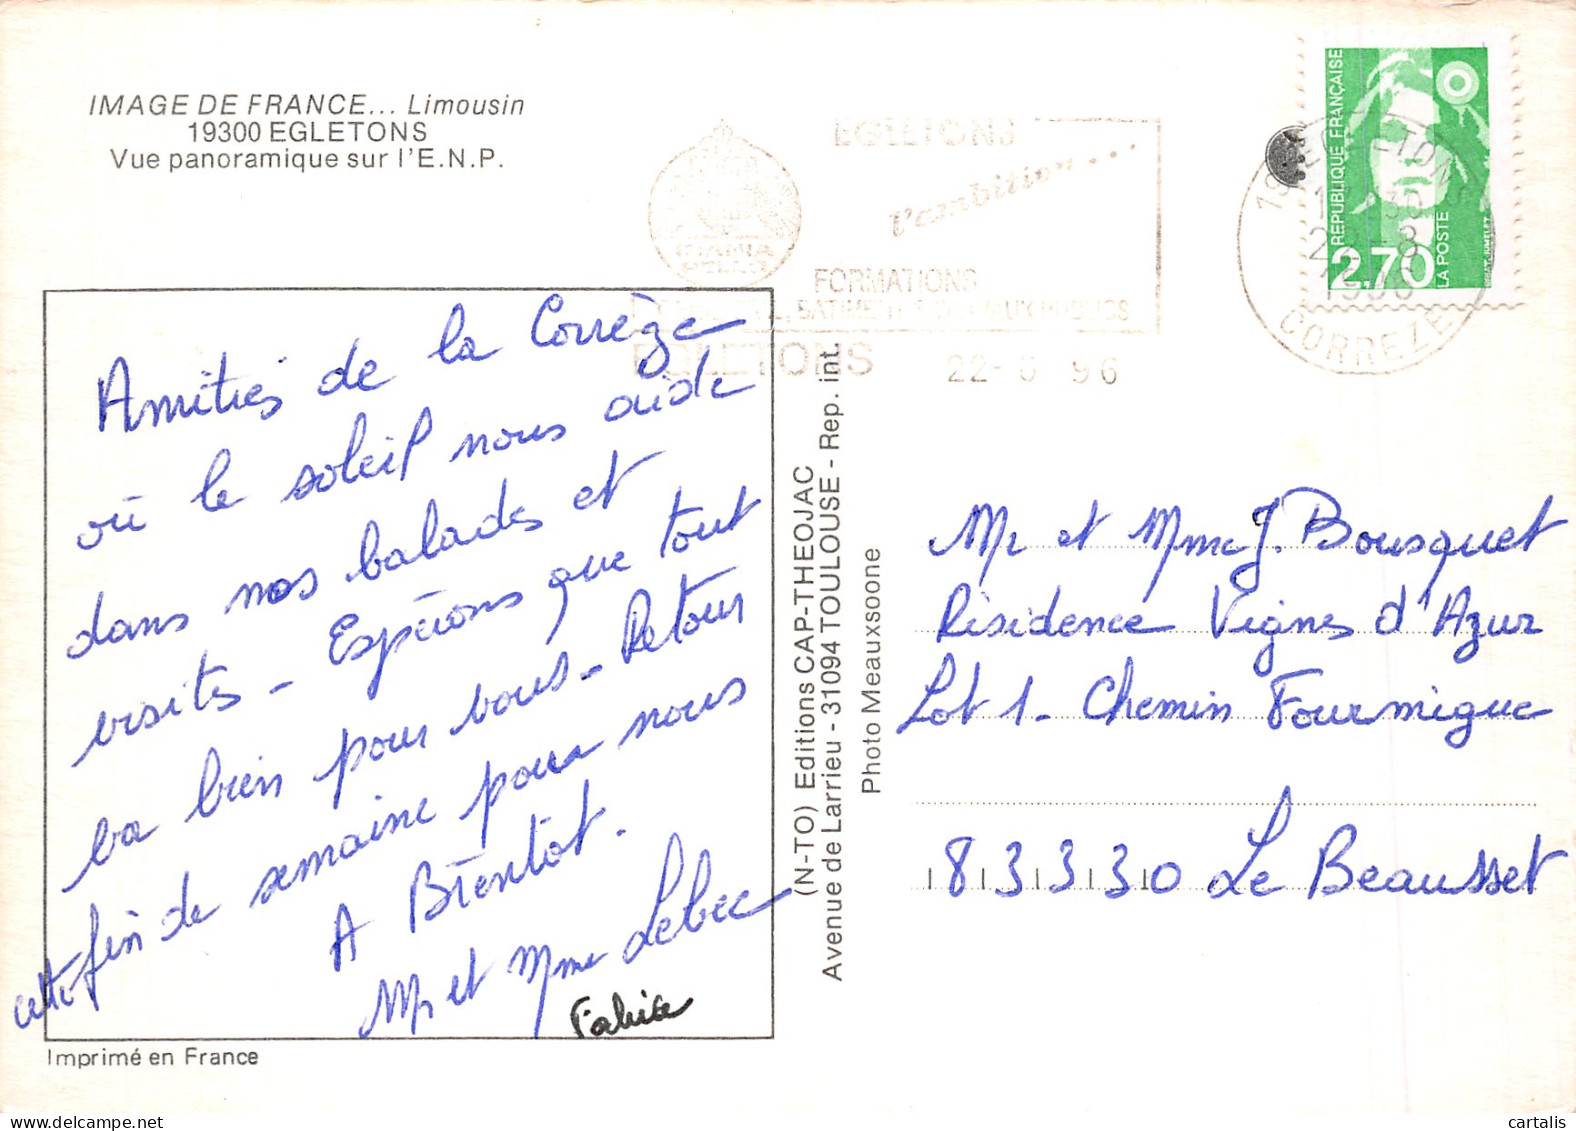 IMAGE DE FRANCE... Limousin
19300 EGLETONS
Vue panoramique sur l'E.N.P.
EGLETONS
l'ambition...
FORMATIONS
BATIMENT
PUBLICS
EGLETONS 22-8 96
RÉPUBLIQUE FRANÇAISE
2,70
LA POSTE
19 EGLETONS
22-8
1996
CORREZE
Amitiés de la Corrèze
où le soleil nous aide
dans nos balades et
visites - Espérons que tout
va bien pour vous - Retour
cette fin de semaine pour nous
A Bientôt.
Mr et Mme Lebec
Imprimé en France
(N-TO) Editions CAP-THEOJAC
Avenue de Larrieu - 31094 TOULOUSE - Rep. int.
Photo Meauxsoone
Mr et Mme J. Bousquet
Résidence Vignes d'Azur
Lot 1 - Chemin Fourmigue
83330 Le Beausset
cartalis